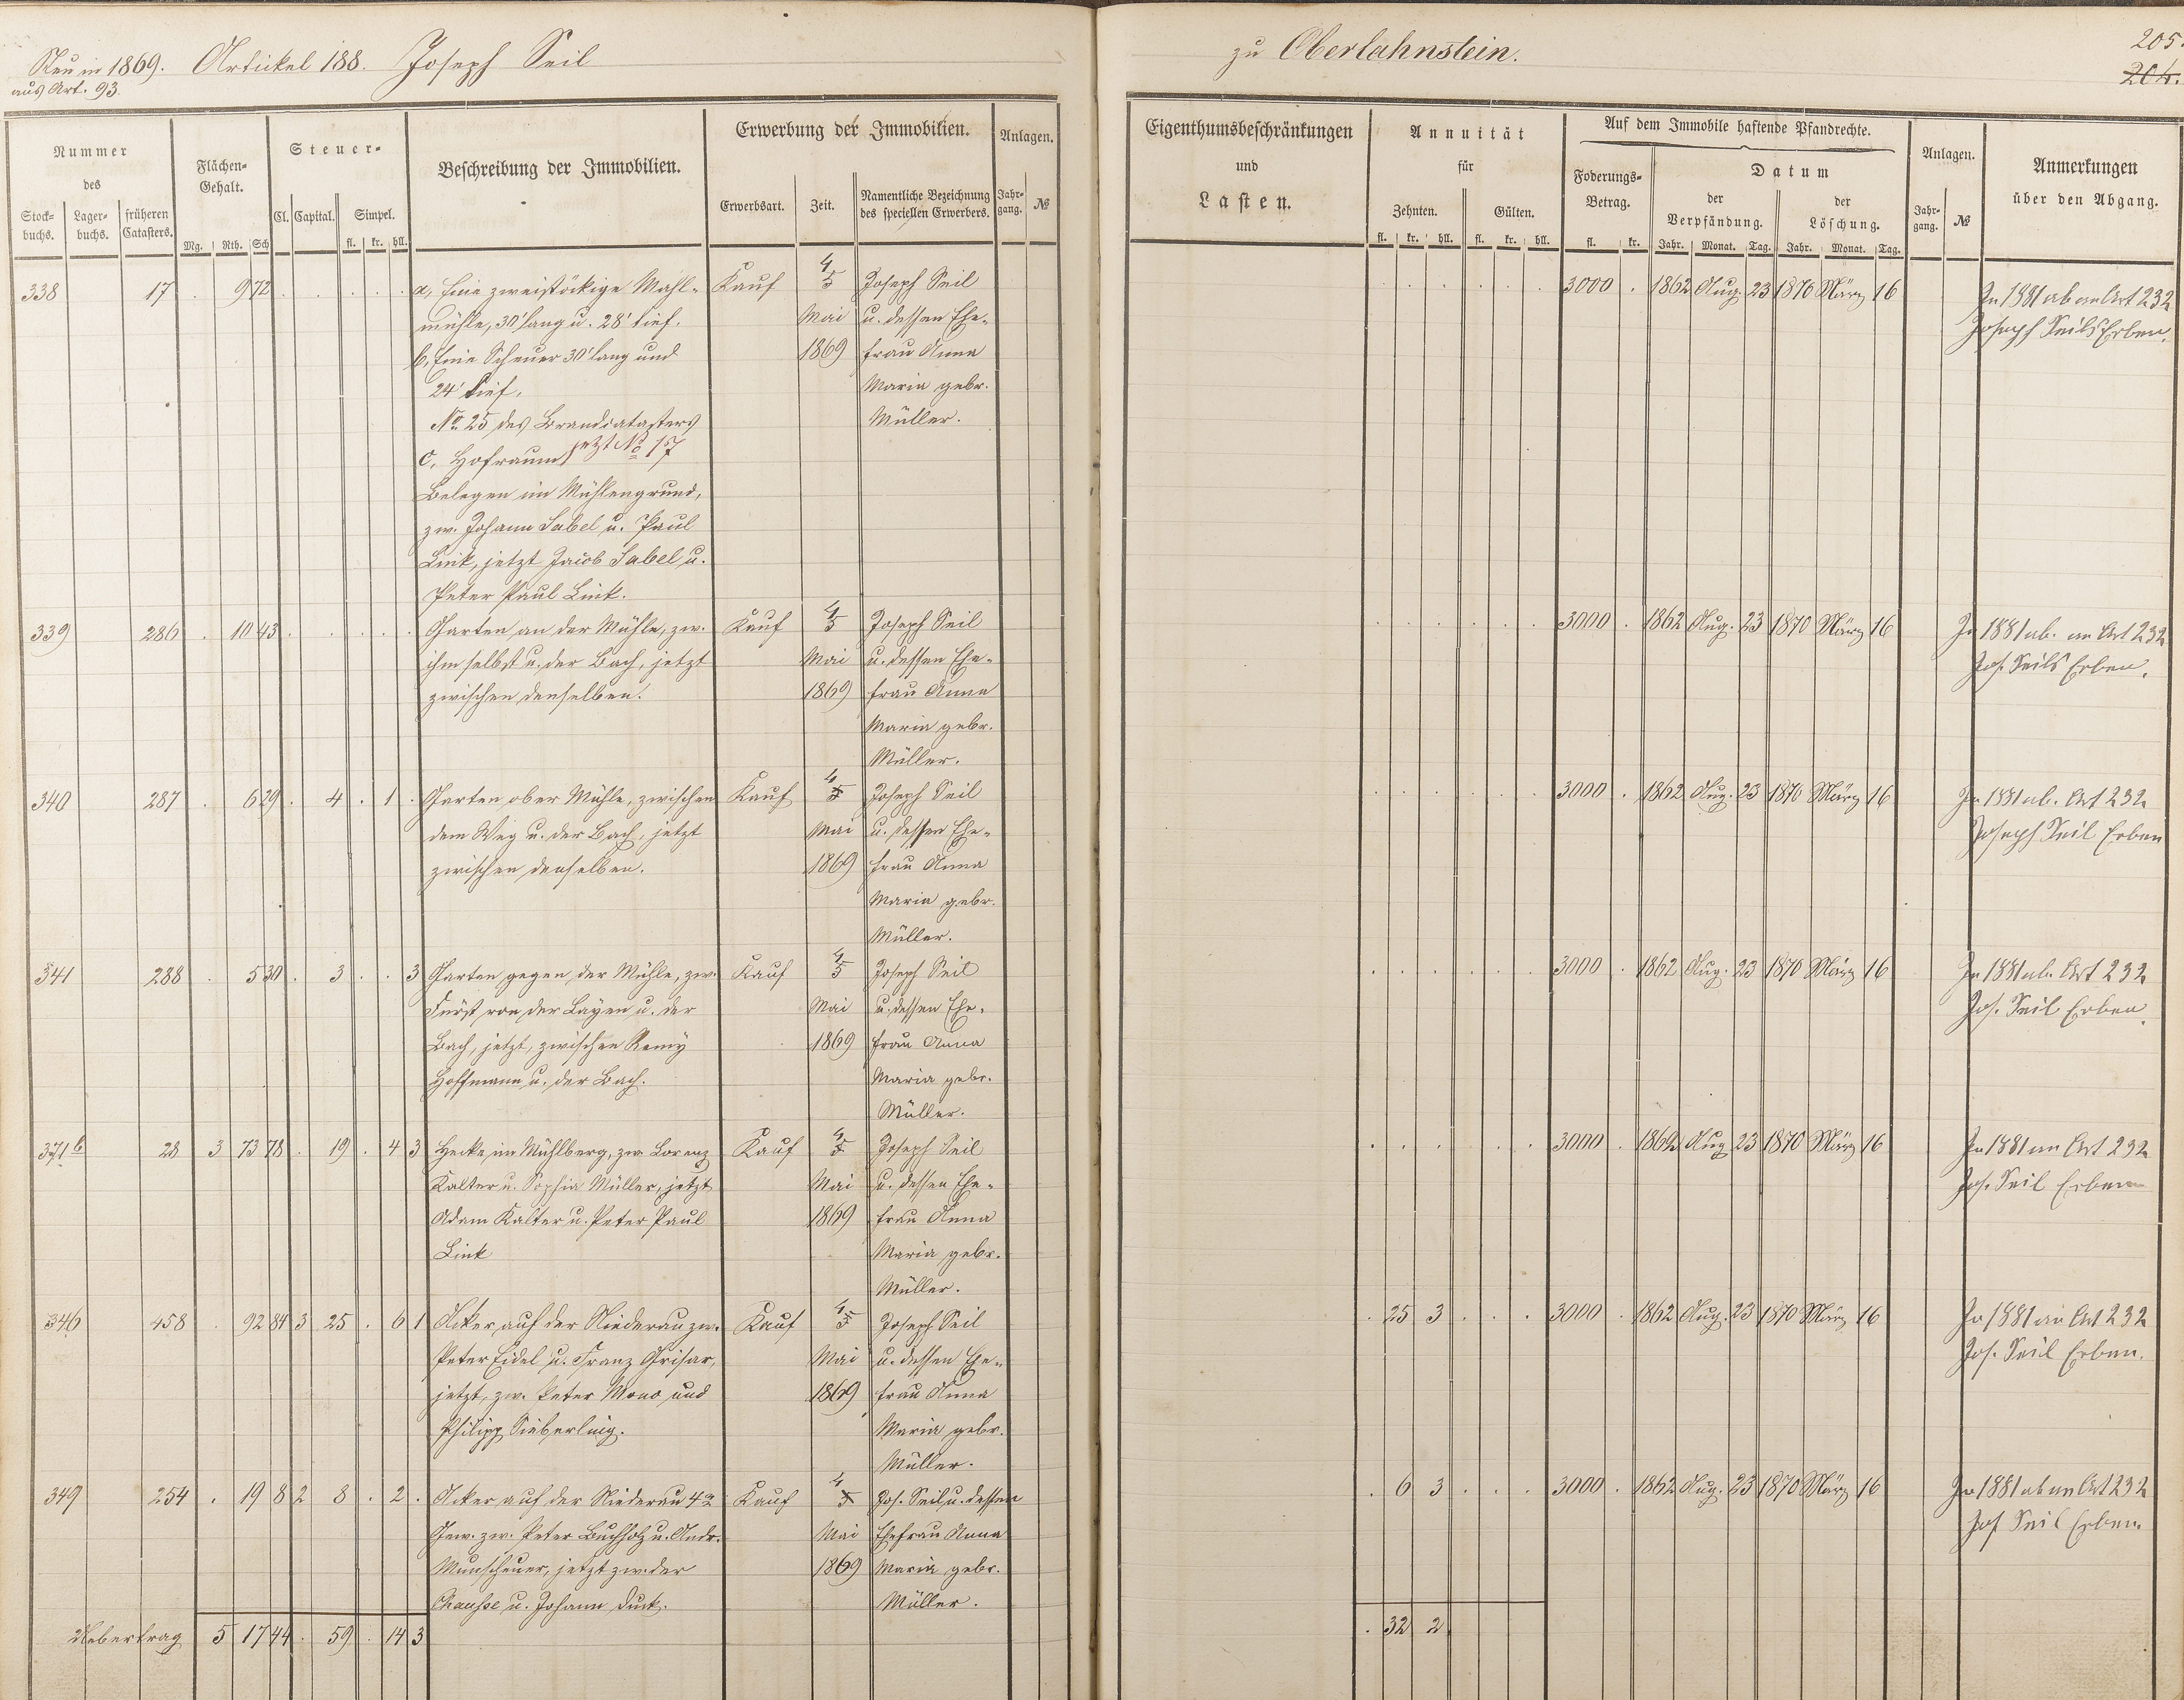 Neu in 1869. Artickel 188. Joseph Seil
aus Art. 93.
zu Oberlahnstein.
205
204.
Nummer
des
Stock-
buchs.
Lager-
buchs.
früheren
Catasters.
Flächen-
Gehalt.
Mg. Rth. Sch
Steuer-
Cl. Capital. Simpel.
fl. kr. hll.
Beschreibung der Immobilien.
Erwerbung der Immobilien.
Erwerbsart. Zeit.
Namentliche Bezeichnung
des speciellen Erwerbers.
Anlagen.
Jahr-
gang.
№
Eigenthumsbeschränkungen
und
Lasten.
Annuität
für
Zehnten. Gülten.
fl. kr. hll. fl. kr. hll.
Auf dem Immobile haftende Pfandrechte.
Foderungs-
Betrag.
fl. kr.
Datum
der
Verpfändung.
Jahr. Monat. Tag.
der
Löschung.
Jahr. Monat. Tag.
Anlagen.
Jahr-
gang.
№
Anmerkungen
über den Abgang.
338 17 . 9 72 . . . . . a, Eine zweistöckige Mahl- Kauf 4/5 Joseph Seil
mühle, 30' lang u. 28' tief. Mai u. dessen Ehe-
b, Eine Scheuer 30' lang und 1869 frau Anna
24' tief. Maria gebr.
No 25 des Brandcatasters Müller.
c, Hofraum jetzt No 17
Belegen im Mühlengrund,
zw. Johann Sabel u. Paul
Link, jetzt Jacob Sabel u.
Peter Paul Link.
. . . . . . 3000 . 1862 Aug. 23 1870 März 16 In 1881 ab an Art 232
Joseph Seils Erben.
339 286 . 10 43 . . . . . Garten an der Mühle, zw. Kauf 4/5 Joseph Seil
ihm selbst u. der Bach, jetzt Mai u. dessen Ehe-
zwischen denselben. 1869 frau Anna
Maria gebr.
Müller.
. . . . . . 3000 . 1862 Aug. 23 1870 März 16 In 1881 ab. an Art 232
Jos. Seils Erben.
340 287 . 6 29 . 4 . 1 . Garten ober Mühle, zwischen Kauf 4/5 Joseph Seil
dem Weg u. der Bach, jetzt Mai u. dessen Ehe-
zwischen denselben. 1869 frau Anna
Maria gebr.
Müller.
. . . . . . 3000 . 1862 Aug. 23 1870 März 16 In 1881 ab. Art 232
Joseph Seil Erben
341 288 . 5 30 . 3 . . 3 Garten gegen der Mühle, zw. Kauf 4/5 Joseph Seil
Fürst von der Layen u. der Mai u. dessen Ehe-
Bach, jetzt, zwischen Remy 1869 frau Anna
Hoffmann u. der Bach. Maria gebr.
Müller.
. . . . . . 3000 . 1862 Aug. 23 1870 März 16 In 1881 ab. Art 232
Jos. Seil Erben.
371b 28 3 73 78 . 19 . 4 3 Hecke im Mühlberg, zw. Lorenz Kauf 4/5 Joseph Seil
Kalter u. Sophia Müller, jetzt Mai u. dessen Ehe-
Adam Kalter u. Peter Paul 1869 frau Anna
Link Maria gebr.
Müller.
. . . . . . 3000 . 1862 Aug 23 1870 März 16 In 1881 an Art 232
Jos. Seil Erben
346 458 . 92 84 3 25 . 6 1 Acker auf der Niederau zw. Kauf 4/5 Joseph Seil
Peter Eidel u. Franz Grisar, Mai u. dessen Ehe-
jetzt, zw. Peter Mono und 1869 frau Anna
Philipp Sieberling. Maria gebr.
Müller.
. 25 3 . . . 3000 . 1862 Aug. 23 1870 März 16 In 1881 an Art 232
Jos. Seil Erben.
349 254 . 19 8 2 8 . 2 . Acker auf der Niederau 4te Kauf 4/5 Jos. Seil u. dessen
Gew. zw. Peter Buchholz u. Andr. Mai Ehefrau Anna
Munscheuer, jetzt zw. der 1869 Maria gebr.
Chausse u. Johann Duck. Müller.
. 6 3 . . . 3000 . 1862 Aug. 23 1870 März 16 In 1881 ab an Art 232
Jos Seil Erben
Uebertrag 5 17 44 . 59 . 14 3
. 32 2